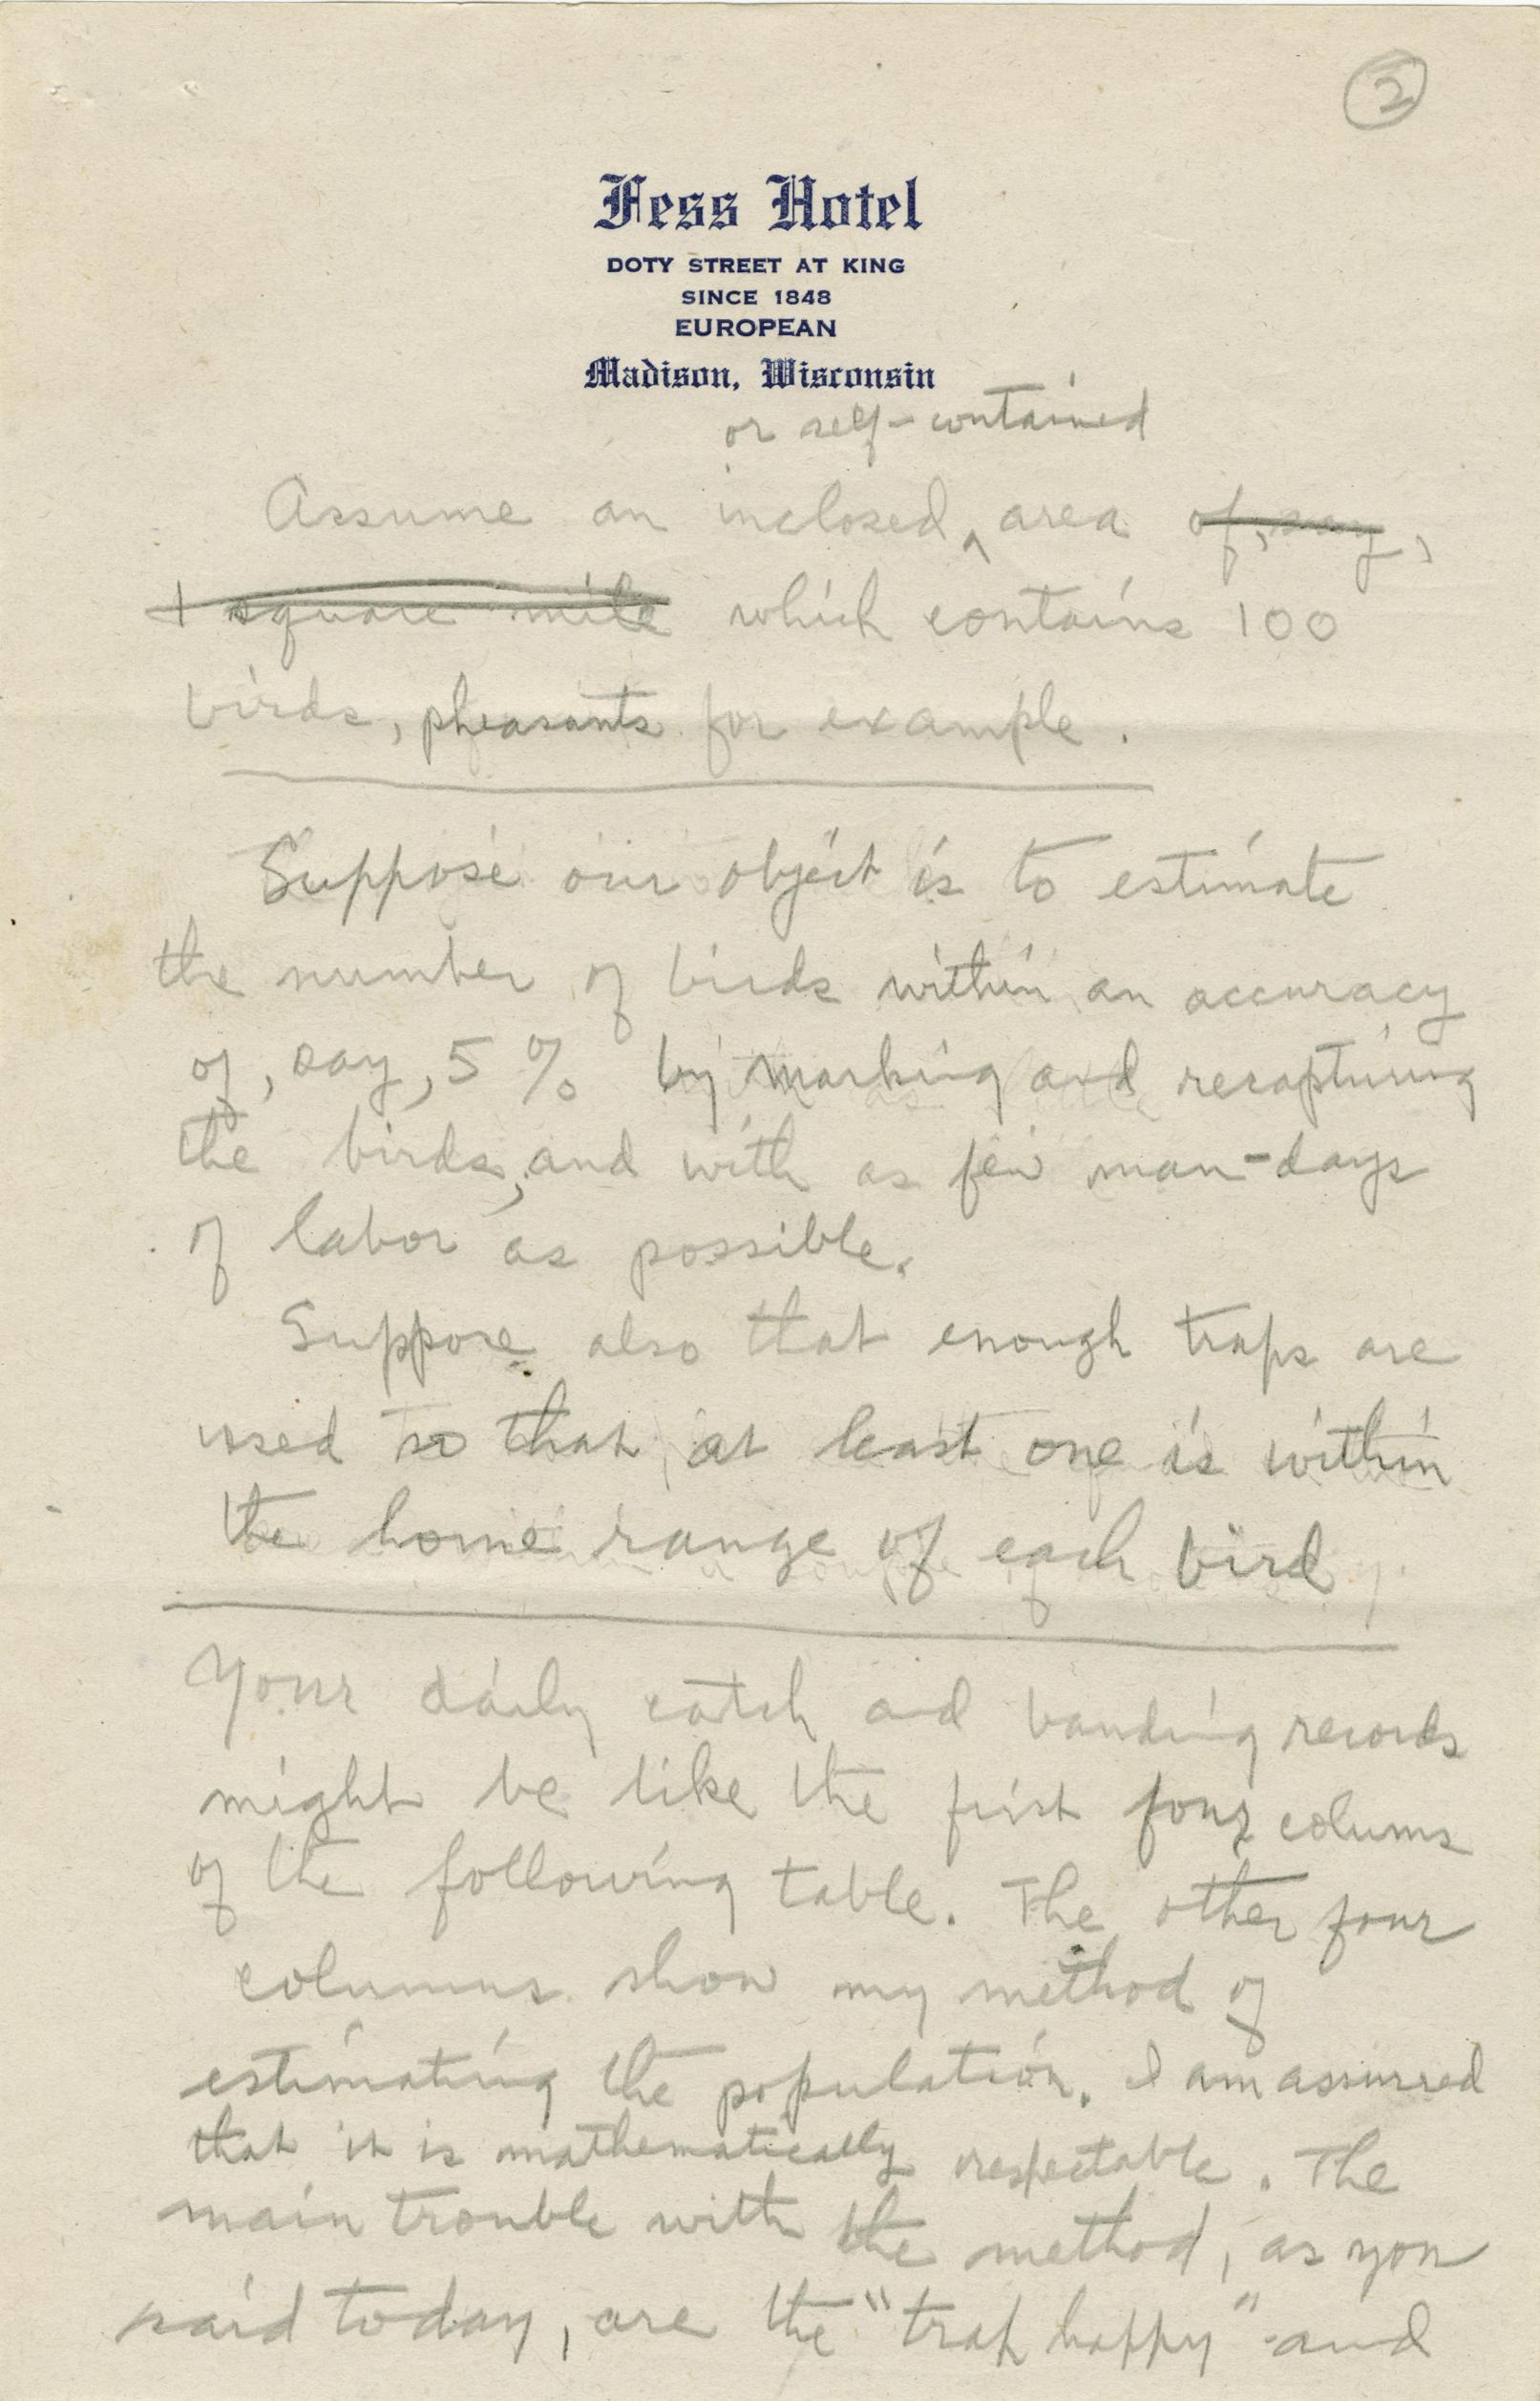 2
Fess Hotel
DOTY STREET AT KING
SINCE 1848
EUROPEAN
Madison, Wisconsin
or self-contained
Assume an inclosed ^ area of, say,
1 square mile which contains 100
birds, pheasants for example.
Suppose our object is to estimate
the number of birds within an accuracy
of, say, 5 % by marking and recapturing
the birds, and with as few man-days
of labor as possible.
Suppose also that enough traps are
used so that at least one is within
the home range of each bird
Your daily catch and banding records
might be like the first four colums
of the following table. The other four
columns show my method of
estimating the population. I am assurred
that it is mathematically respectable. The
main trouble with the method, as you
said today, are the "trap happy" and